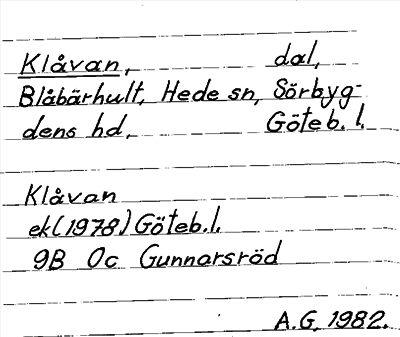 Klåvan, dal,
Blåbärhult, Hede sn, Sörbyg-
dens hd, Göteb. l.
Klåvan
ek (1978) Göteb. l.
9B 0c Gunnarsröd
A.G. 1982.